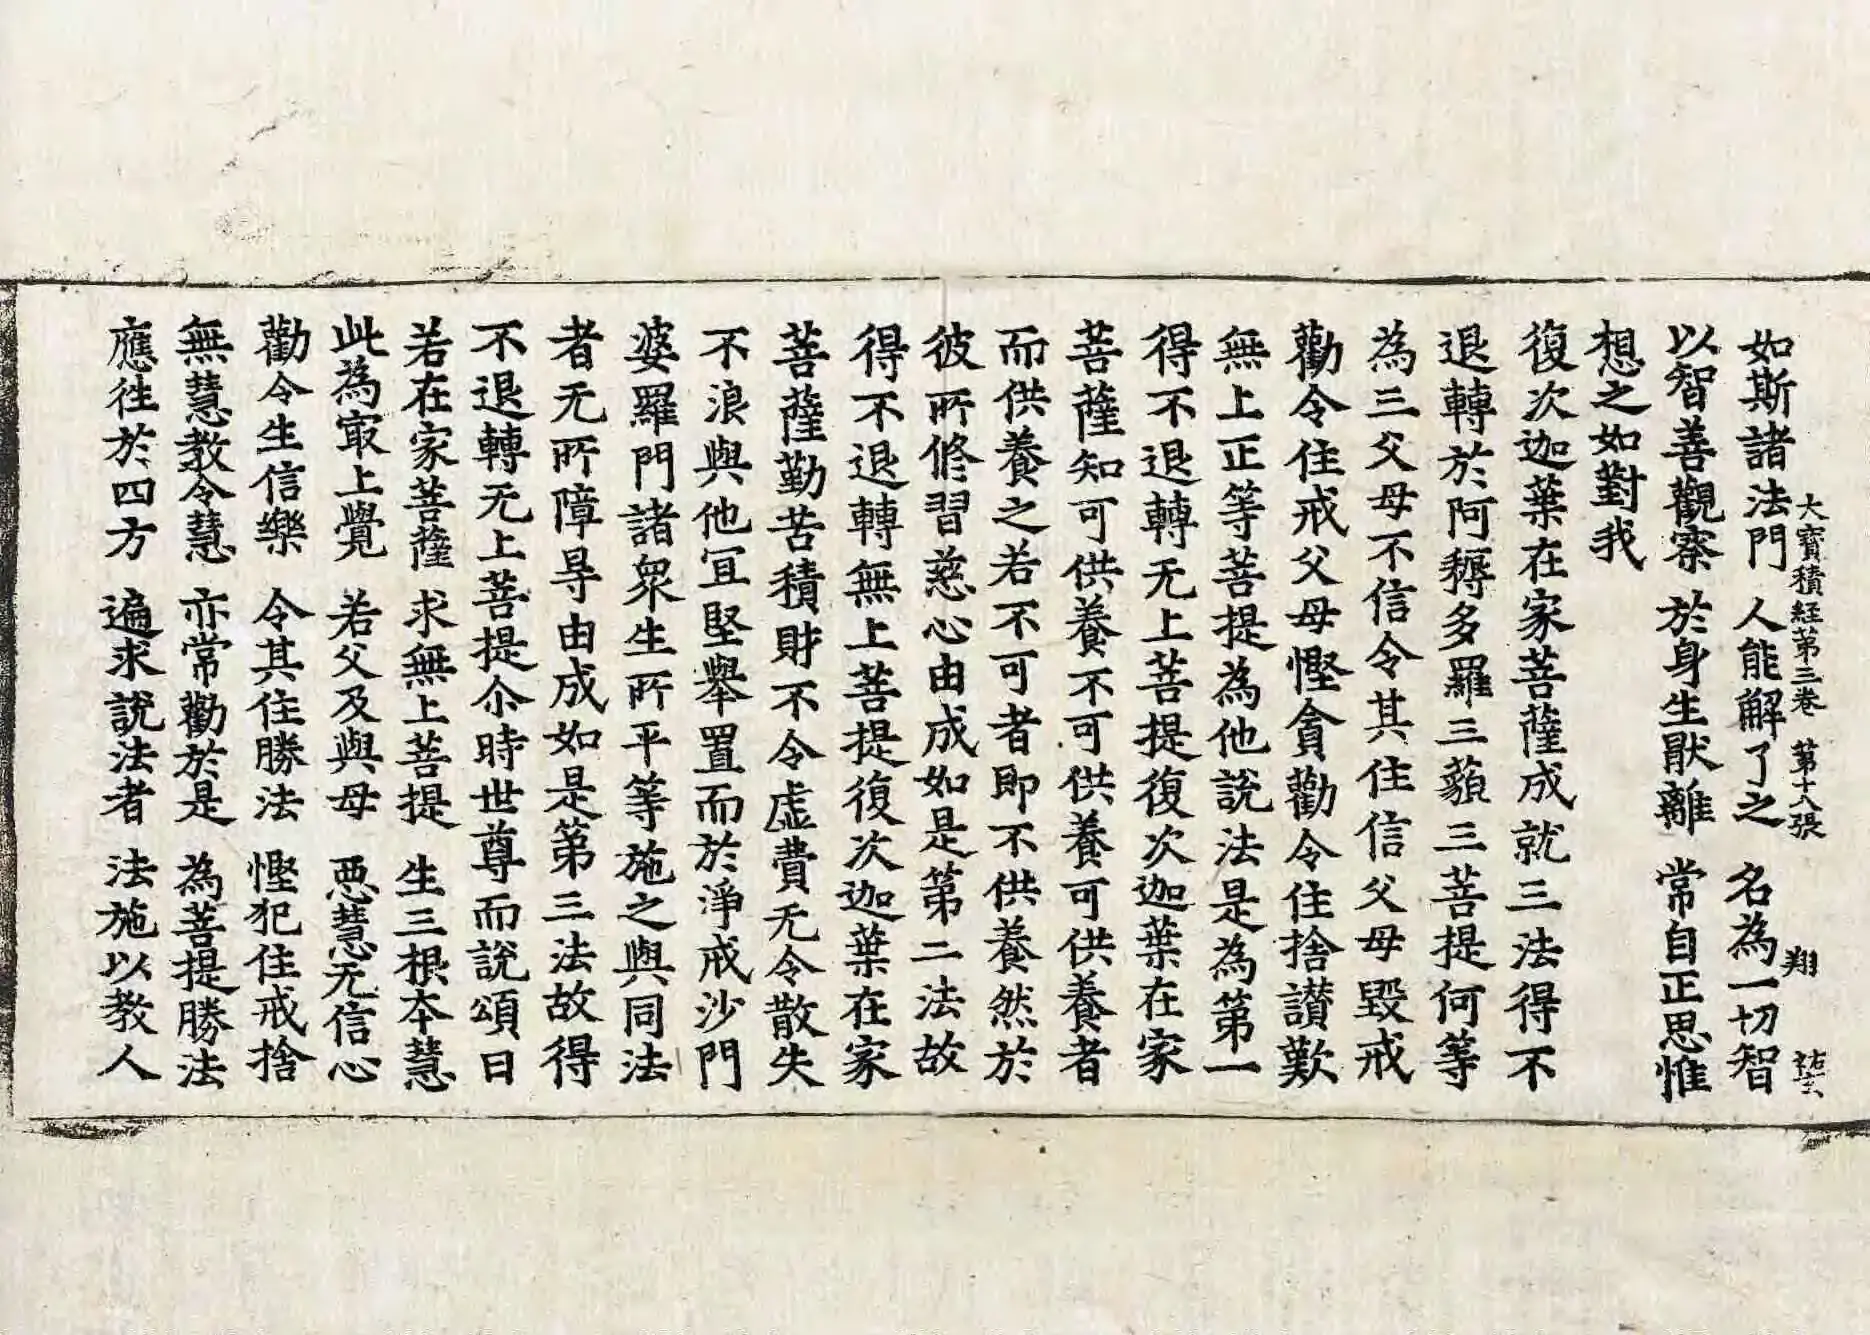 如斯諸法門　人能解了之　名為一切智
大寶積経第三卷　第十八張　翔
以智善觀察　於身生猒離　常自正思惟
想之如對我
復次迦葉在家菩薩成就三法得不
退轉於阿耨多羅三藐三菩提何等
為三父母不信令其住信父母毀戒
勸令住戒父母慳貪勸令住捨讃歎
無上正等菩提為他說法是為第一
得不退轉无上菩提復次迦葉在家
菩薩知可供養不可供養可供養者
而供養之若不可者即不供養然於
彼所修習慈心由成如是第二法故
得不退轉無上菩提復次迦葉在家
菩薩勤苦積財不令虛費无令散失
不浪與他冝堅舉置而於淨戒沙門
婆羅門諸衆生所平等施之與同法
者无所障㝵由成如是第三法故得
不退轉无上菩提尒時世尊而說頌曰
若在家菩薩　求無上菩提　生三根本慧
此為㝡上覺　若父及與母　惡慧无信心
勸令生信樂　令其住勝法　慳犯住戒捨
無慧教令慧　亦常勸於是　為菩提勝法
應往於四方　遍求說法者　法施以教人